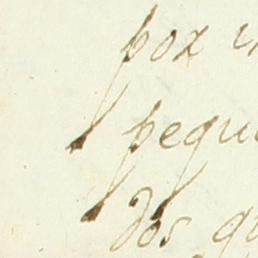 por
pequ
dos qu